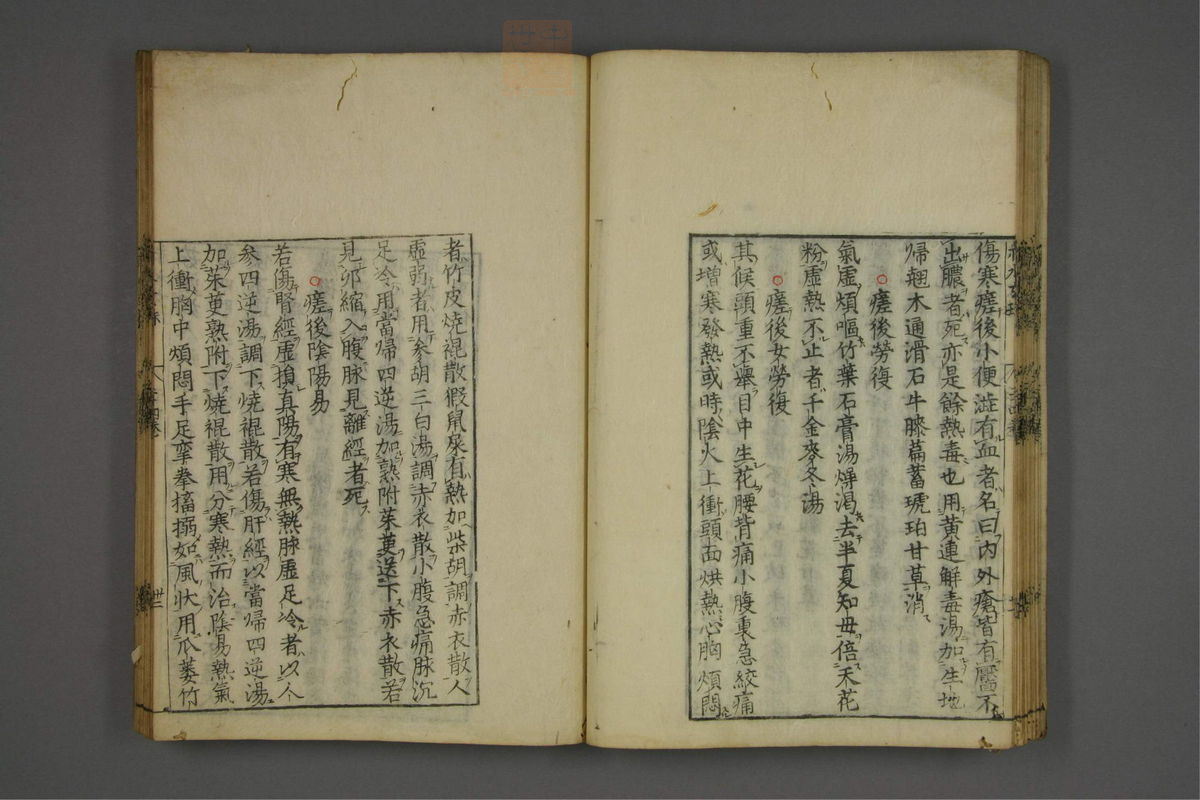 傷寒瘥後小便澁有血者名曰內外瘡皆有靨不
出膿者死亦是餘熱毒也用黃連解毒湯加生地
歸翹木通滑石牛膝萹蓄琥珀甘草消
瘥後勞復
氣虛煩嘔竹葉石膏湯燖渴去半夏知毋倍天花
粉虛熱不止者千金麥冬湯
瘥後女勞復
其候頭重不舉目中生花腰背痛小腹裏急絞痛
或增寒發熱或時陰火上衝頭面烘熱心胸煩悶
者竹皮燒裩散假鼠屎有熱加柴胡調赤衣散人
虛弱者用參胡三白湯調赤衣散小腹急痛脉沉
足冷用當歸四逆湯加熟附茱萸送下赤衣散若
見卵縮入腹脉見離經者死
瘥後陰陽易
若傷腎經虛損真陽有寒無熱脉虛足冷者以人
參四逆湯調下燒裩散若傷肝經以當歸四逆湯
加茱萸熟附下燒裩散用分寒熱而治陰易熱氣
上衝胸中煩悶手足攣拳搐搦如風狀用瓜蔞竹